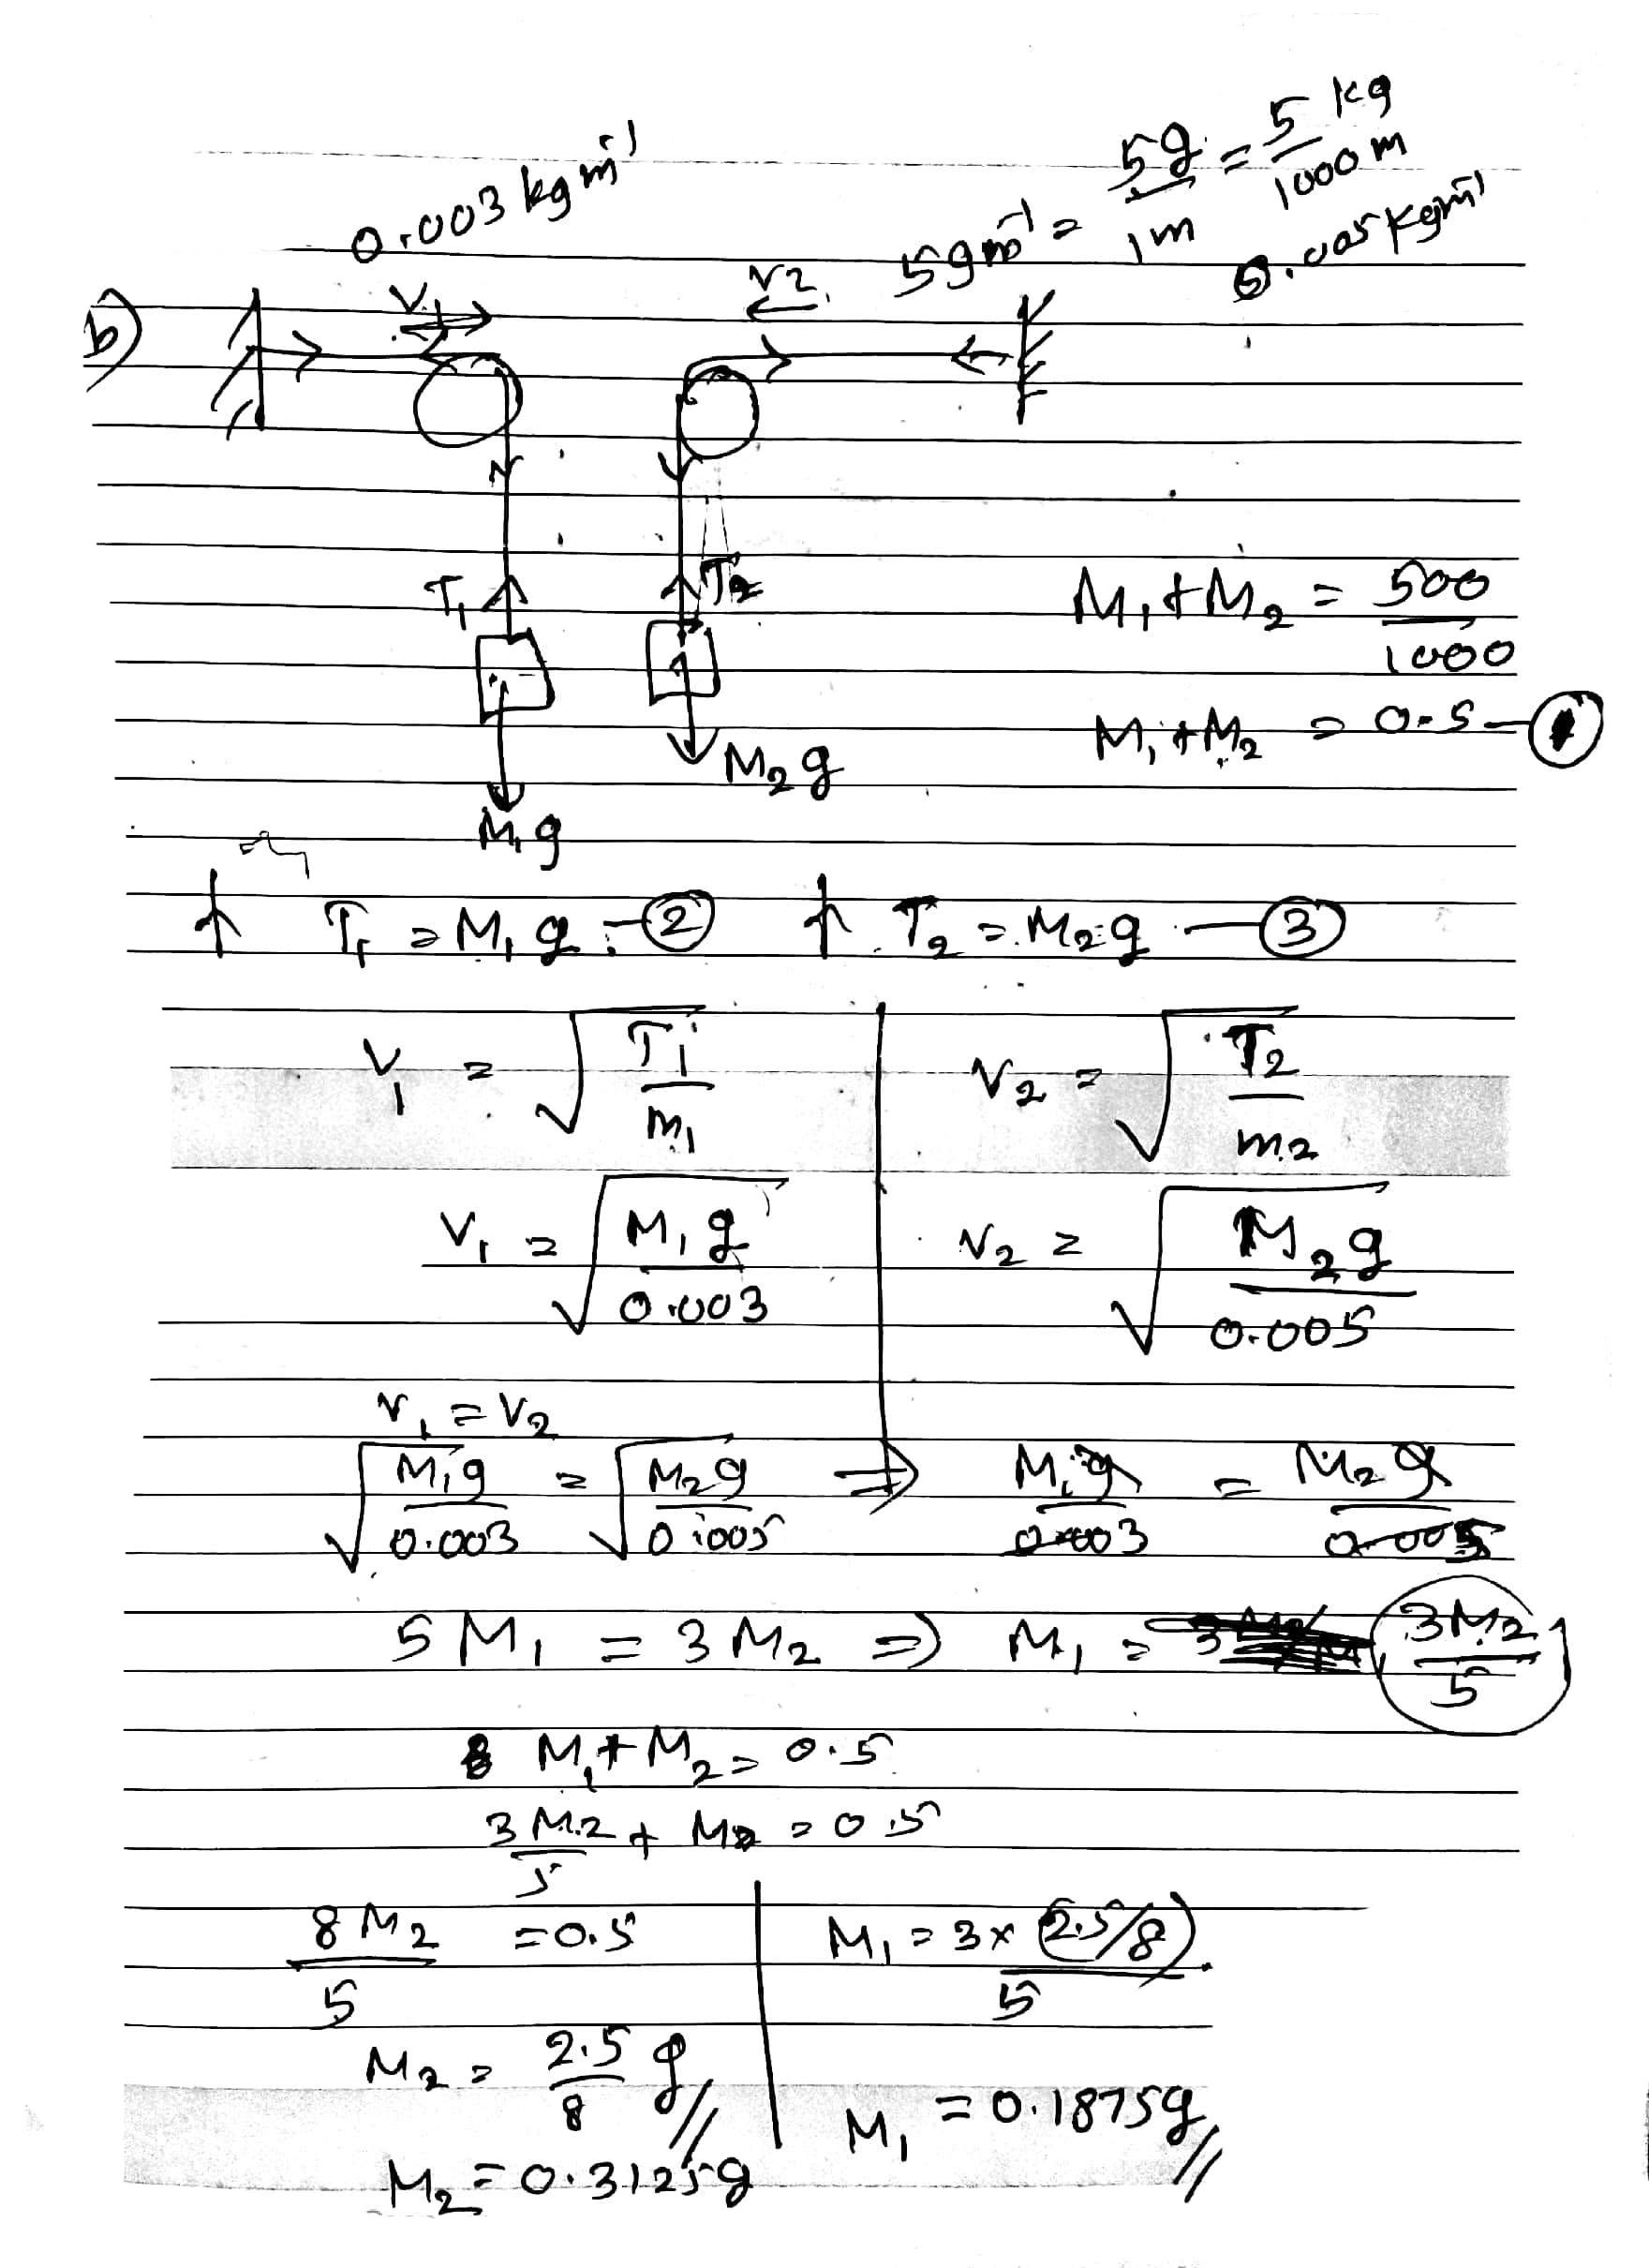 0.003 kg m⁻¹
5 g m⁻¹ = 5g / 1m = 5 kg / 1000 m
0.005 kg m⁻¹
b)
V₁
V₂
T₁
T₂
M₁ + M₂ = 500 / 1000
M₁ + M₂ = 0.5 — ①
M₂g
M₁g
↑ T₁ = M₁g — ② ↑ T₂ = M₂g — ③
V₁ = √(T₁ / m₁) V₂ = √(T₂ / m₂)
V₁ = √(M₁g / 0.003) V₂ = √(M₂g / 0.005)
V₁ = V₂
√(M₁g / 0.003) = √(M₂g / 0.005) ⇒ M₁g / 0.003 = M₂g / 0.005
5M₁ = 3M₂ ⇒ M₁ = 3M₂ / 5
M₁ + M₂ = 0.5
3M₂ / 5 + M₂ = 0.5
8M₂ / 5 = 0.5
M₂ = 2.5 / 8 g
M₂ = 0.3125g
M₁ = 3 × (2.5/8) / 5
M₁ = 0.1875g